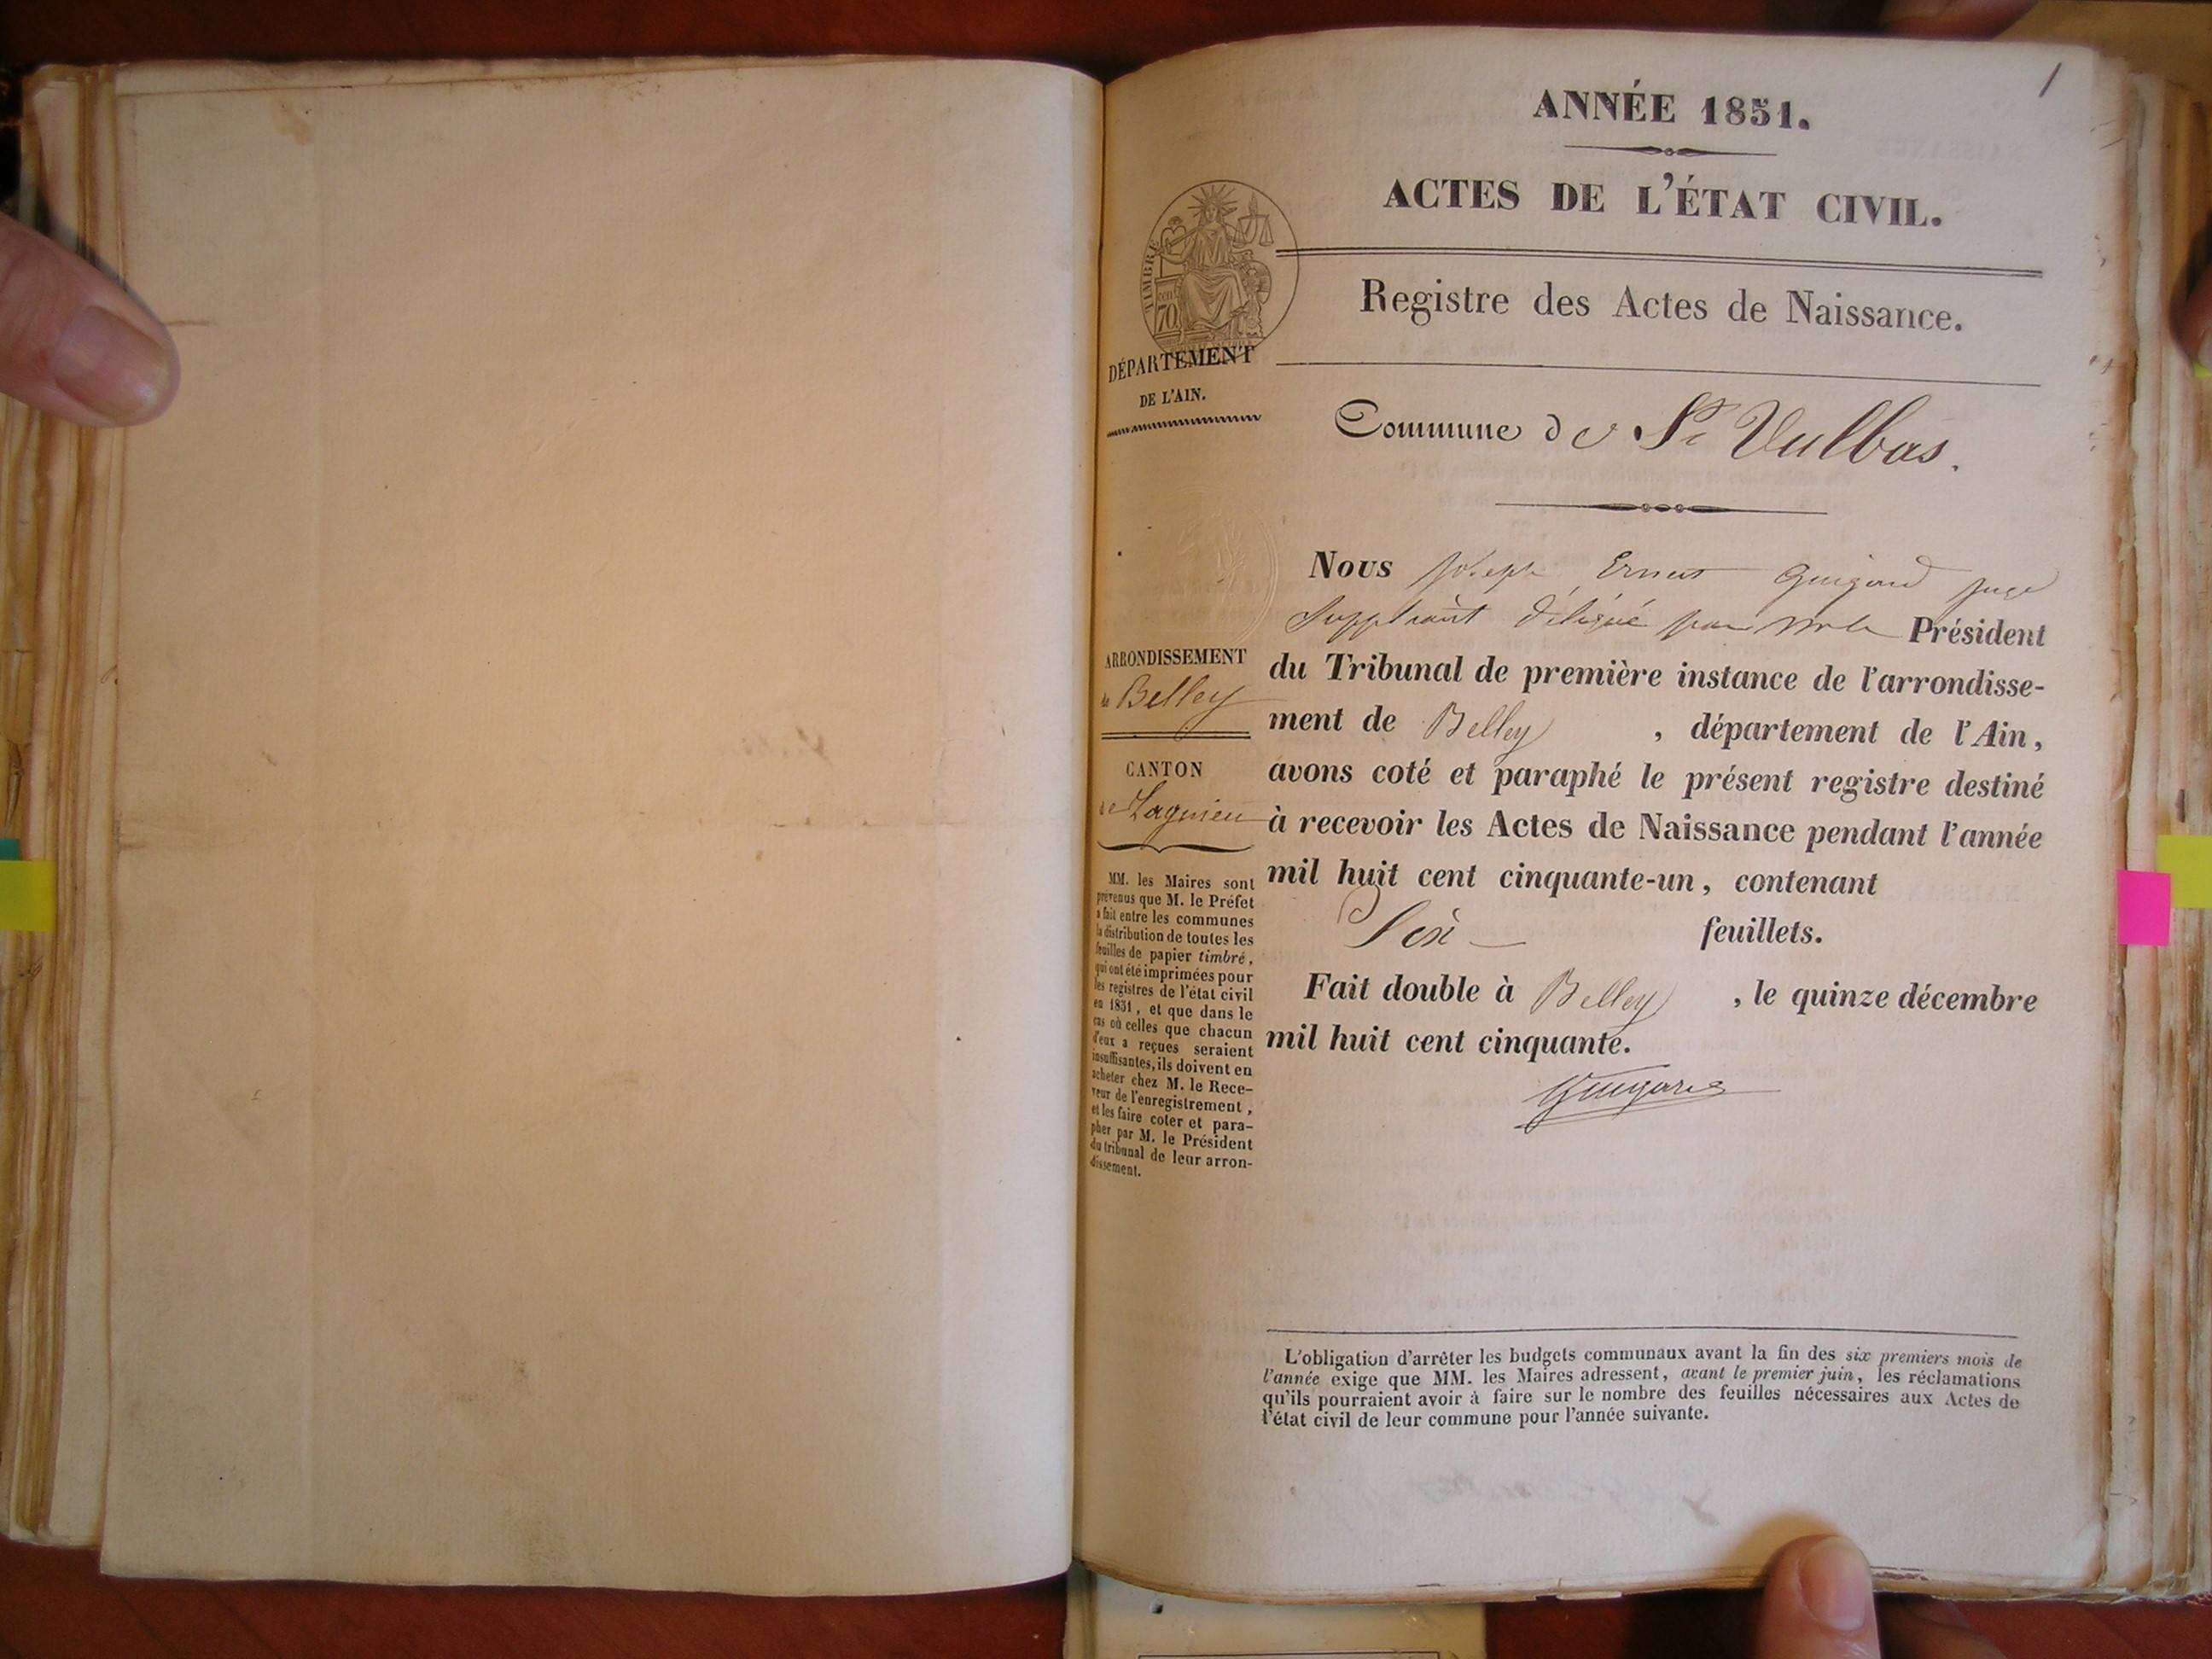 1
ANNÉE 1851.
ACTES DE L'ÉTAT CIVIL.
Registre des Actes de Naissance.
TIMBRE
70
DÉPARTEMENT
DE L'AIN.
Commune de St Vulbas.
Nous Joseph Ernest Guigard juge
suppléant délégué par Mr le Président
du Tribunal de première instance de l'arrondisse-
ment de Belley, département de l'Ain,
avons coté et paraphé le présent registre destiné
à recevoir les Actes de Naissance pendant l'année
mil huit cent cinquante-un, contenant
Six feuillets.
Fait double à Belley, le quinze décembre
mil huit cent cinquante.
Guigard
ARRONDISSEMENT
de Belley
CANTON
de Lagnieu
MM. les Maires sont
prévenus que M. le Préfet
a fait entre les communes
la distribution de toutes les
feuilles de papier timbré,
qui ont été imprimées pour
les registres de l'état civil
en 1851, et que dans le
cas où celles que chacun
d'eux a reçues seraient
insuffisantes, ils doivent en
acheter chez M. le Rece-
veur de l'enregistrement,
et les faire coter et para-
pher par M. le Président
du tribunal de leur arron-
dissement.
L'obligation d'arrêter les budgets communaux avant la fin des six premiers mois de
l'année exige que MM. les Maires adressent, avant le premier juin, les réclamations
qu'ils pourraient avoir à faire sur le nombre des feuilles nécessaires aux Actes de
l'état civil de leur commune pour l'année suivante.